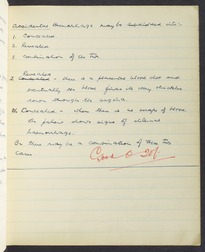 Accidental Haemorrhage may be subdivided into:-
1. Concealed
2. Revealed
3. Combination of the two.
Revealed
2. Concealed - there is a placental blood clot and
eventually the blood forces its way
down through the vagina.
Concealed - when there is no escape of blood
the patient shows signs of
haemorrhage.
Or there may be a combination of these two